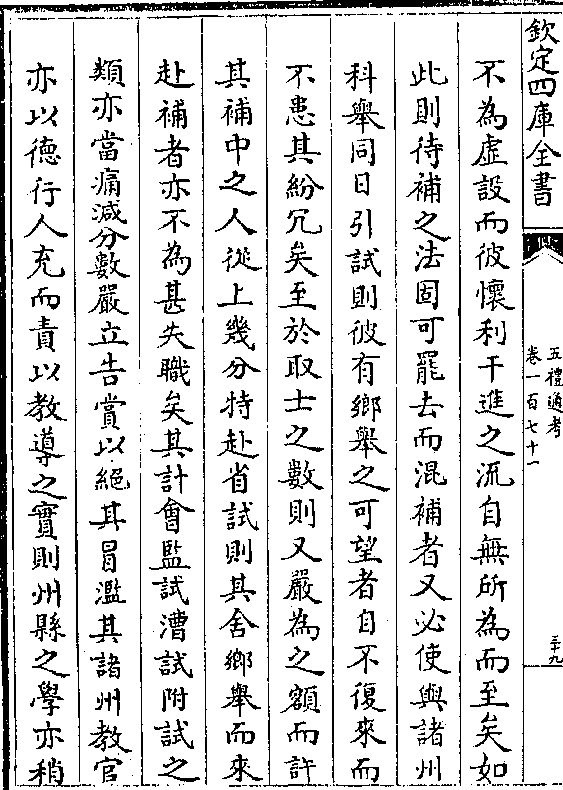 欽定四庫全書
五禮通考
卷一百七十一
三十九
不為虛設而彼懷利干進之流自無所為而至矣如
此則待補之法固可罷去而混補者又必使與諸州
科舉同日引試則彼有鄉舉之可望者自不復來而
不患其紛冗矣至於取士之數則又嚴為之額而許
其補中之人從上幾分特赴省試則其舍鄉舉而來
赴補者亦不為甚失職矣其計會監試漕試附試之
類亦當痛減分數嚴立告賞以絕其冒濫其諸州教官
亦以德行人充而責以教導之實則州縣之學亦稍